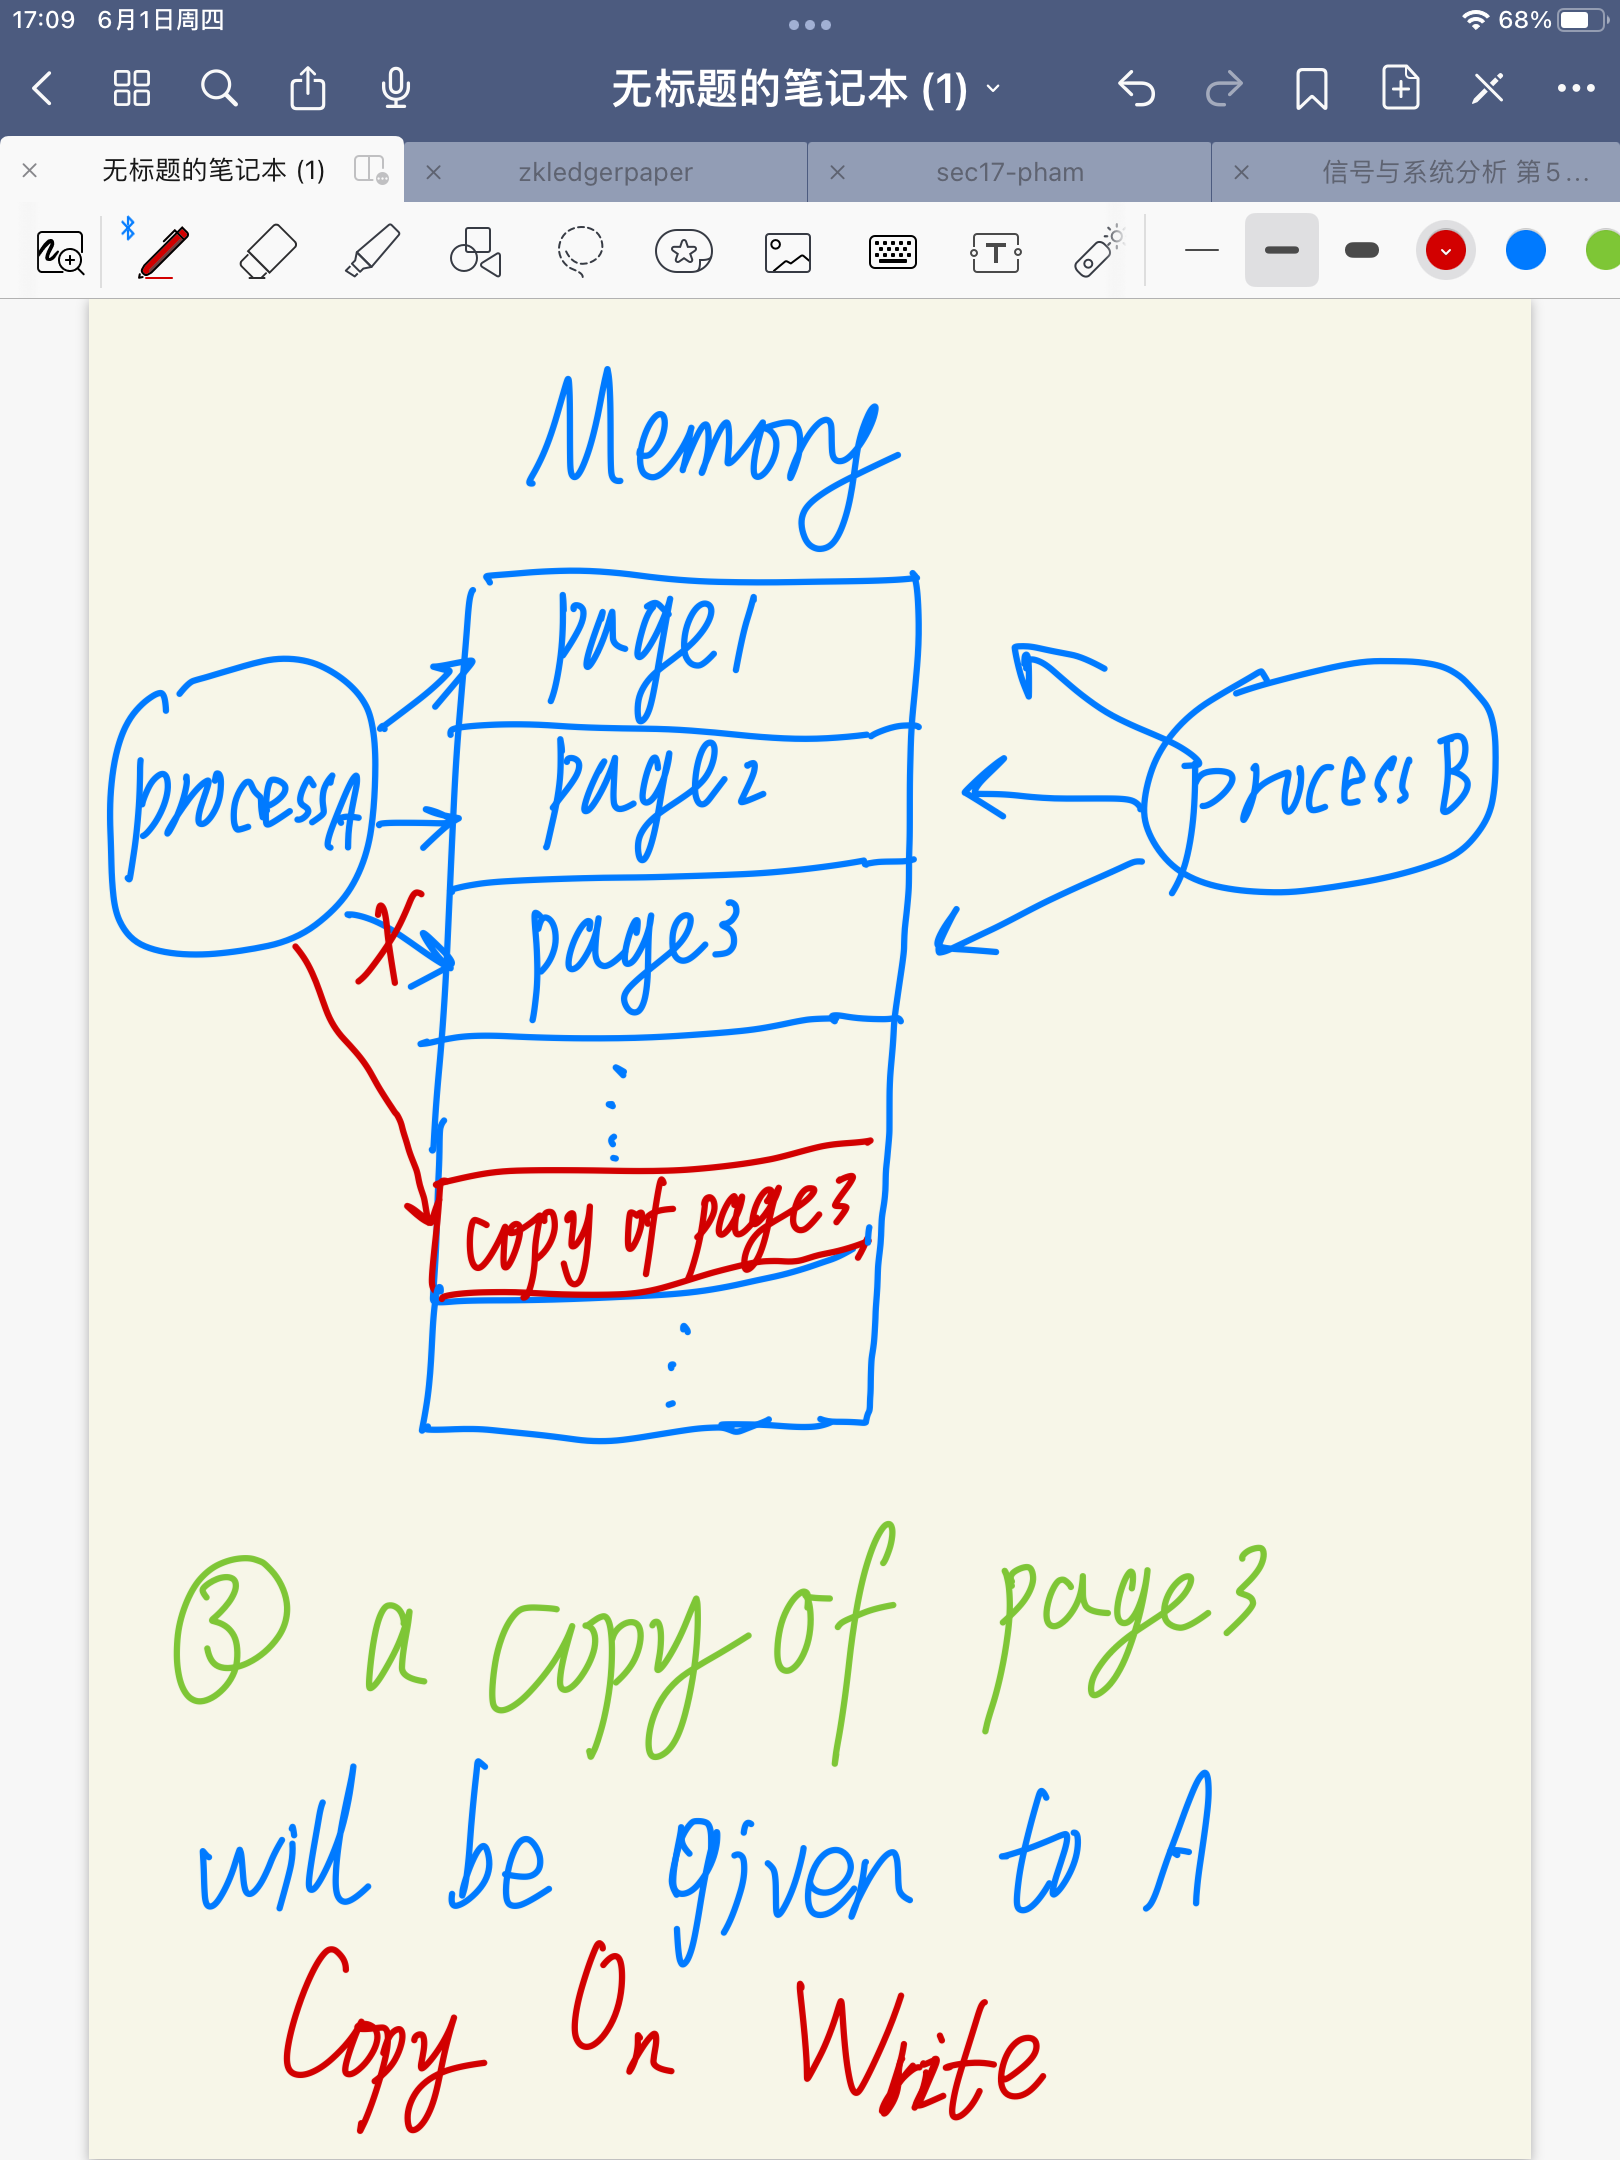 17:09 6月1日周四
68%
无标题的笔记本 (1)
无标题的笔记本 (1)
zkledgerpaper
sec17-pham
信号与系统分析 第5...
Memory
page1
processA
page2
process B
page3
copy of page3
③ a copy of page3
will be given to A
Copy On Write